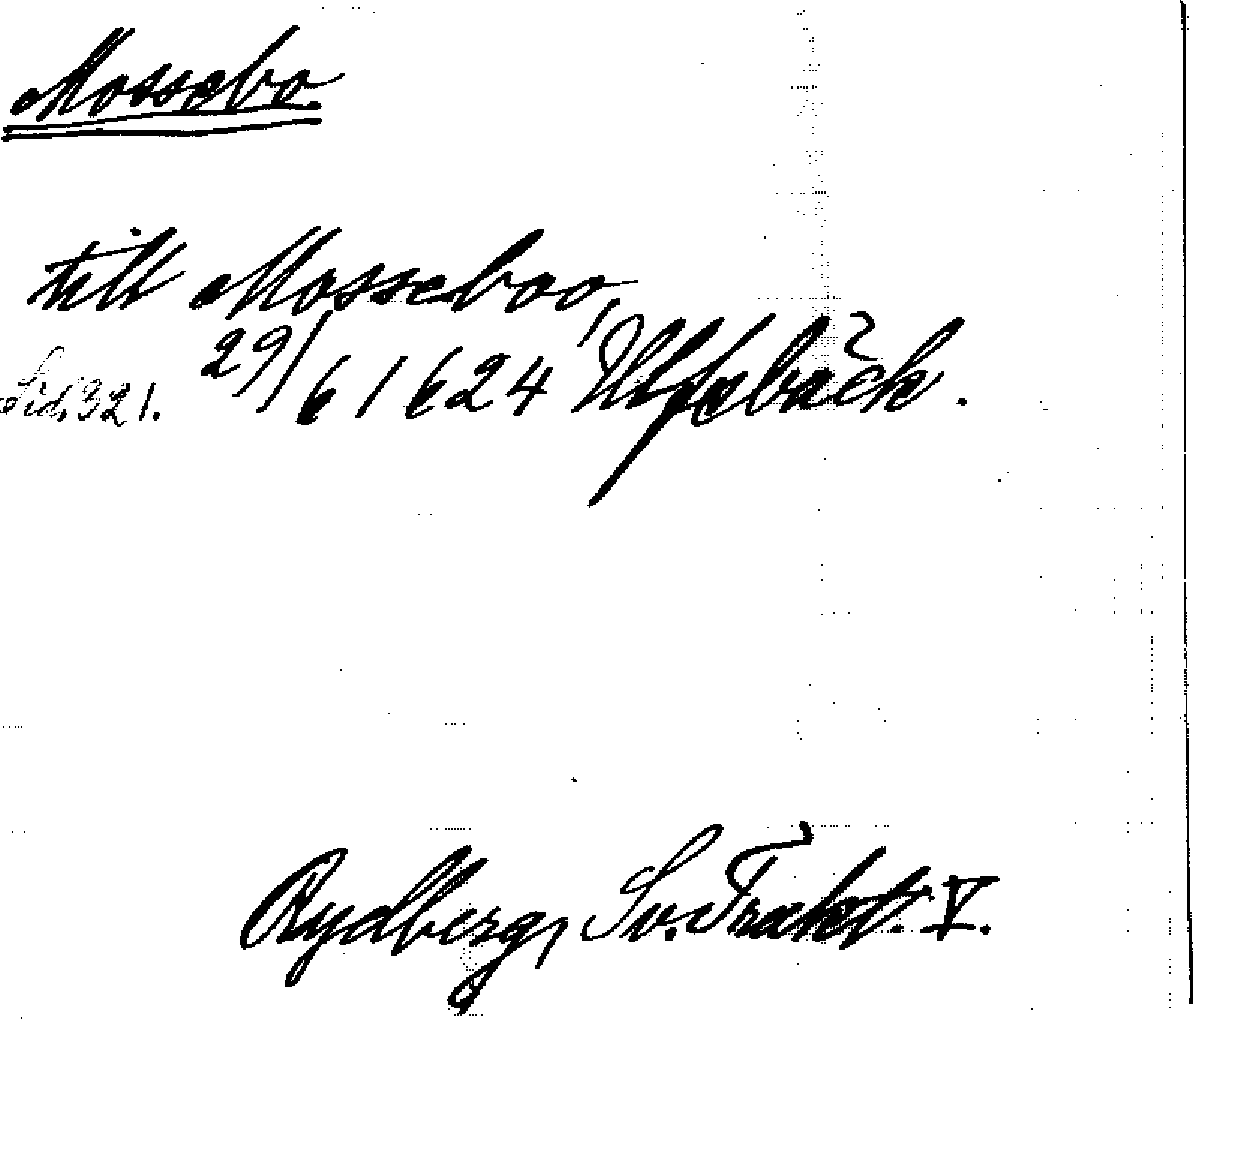 Mossebo.
till Mosseboo,
Sid. 321. 29/6 1624 Ulfsbäck.
Rydberg, Sv. Trakt. V.